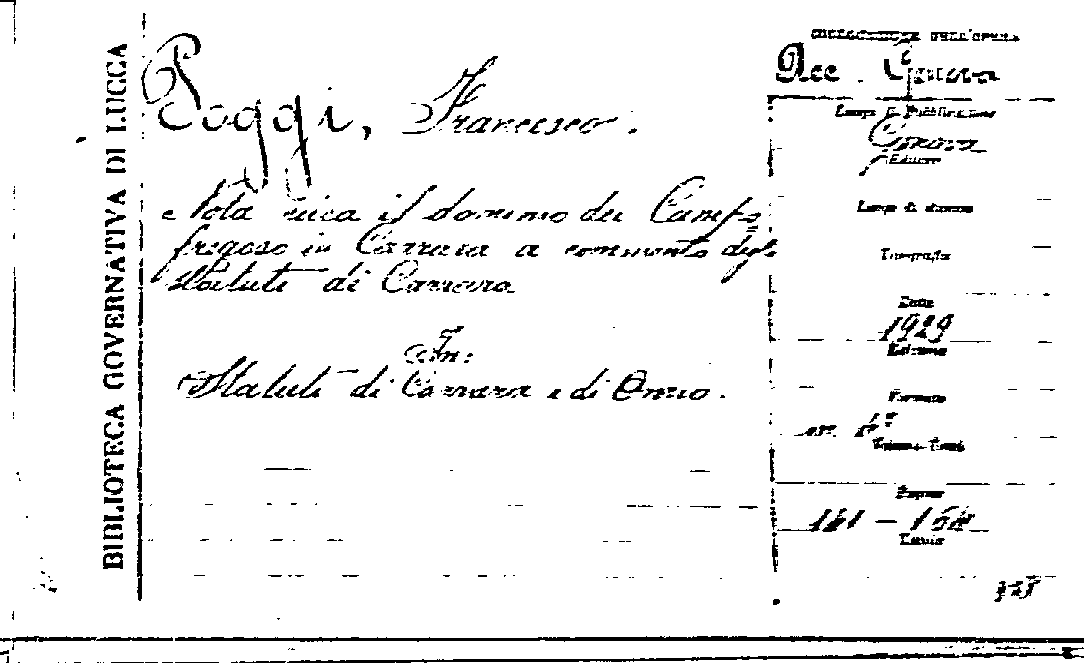 BIBLIOTECA GOVERNATIVA DI LUCCA
Poggi, Francesco.
Nota circa il dominio dei Campo
fregoso in Carrara a commento degli
Statuti di Carrara
In:
Statuti di Carrara e di
COLLOCAZIONE DELL'OPERA
Acc. Genova
Luogo di Pubblicazione
Genova
Editore
Luogo di stampa
Tipografia
Data
1929
Edizione
Formato
in
Pagine
161 - 
Tavole